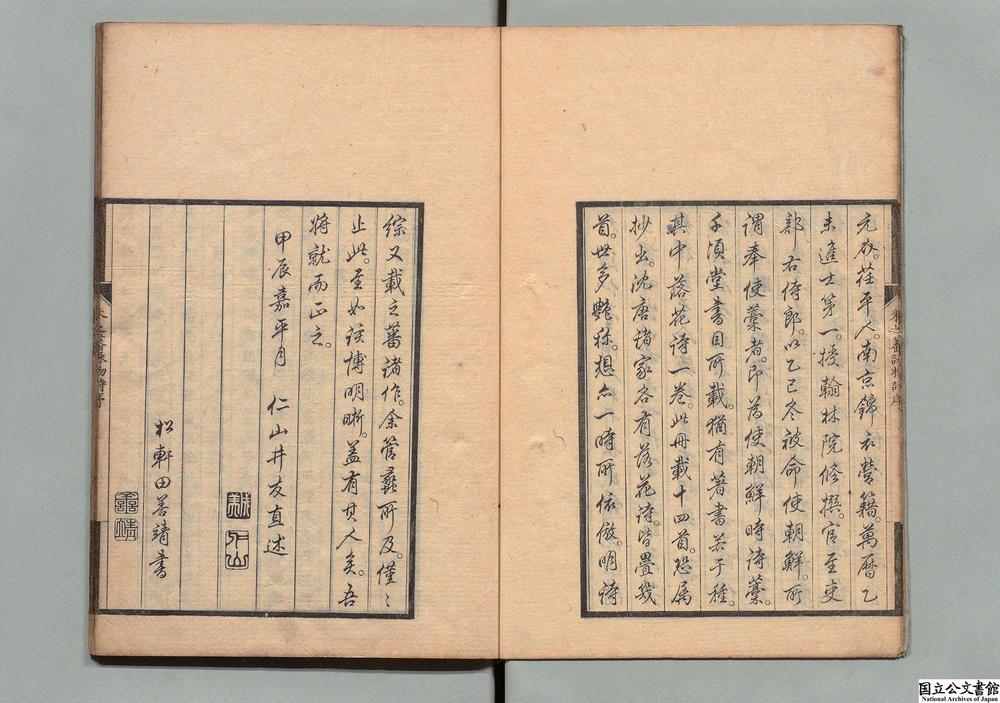 元介。茌平人。南京錦衣營籍。萬曆乙
未進士第一。授翰林院修撰。官至吏
部右侍郎。以乙巳冬被命使朝鮮。所
謂奉使藁者。即為使朝鮮時詩藁。
千頃堂書目所載。猶有著書若干種。
其中落花詩一卷。此冊載十四首。恐属
抄出。沈唐諸家各有落花詩。皆疊幾
首。世多艷称。想亦一時所依倣。明詩
綜又載之蕃諸作。余管蠡所及。僅〻
止此。至如該博明晰。蓋有其人矣。吾
将就而正之。
甲辰嘉平月 仁山井友直述
松軒田善靖書
朱之蕃詠物詩序
国立公文書館
National Archives of Japan